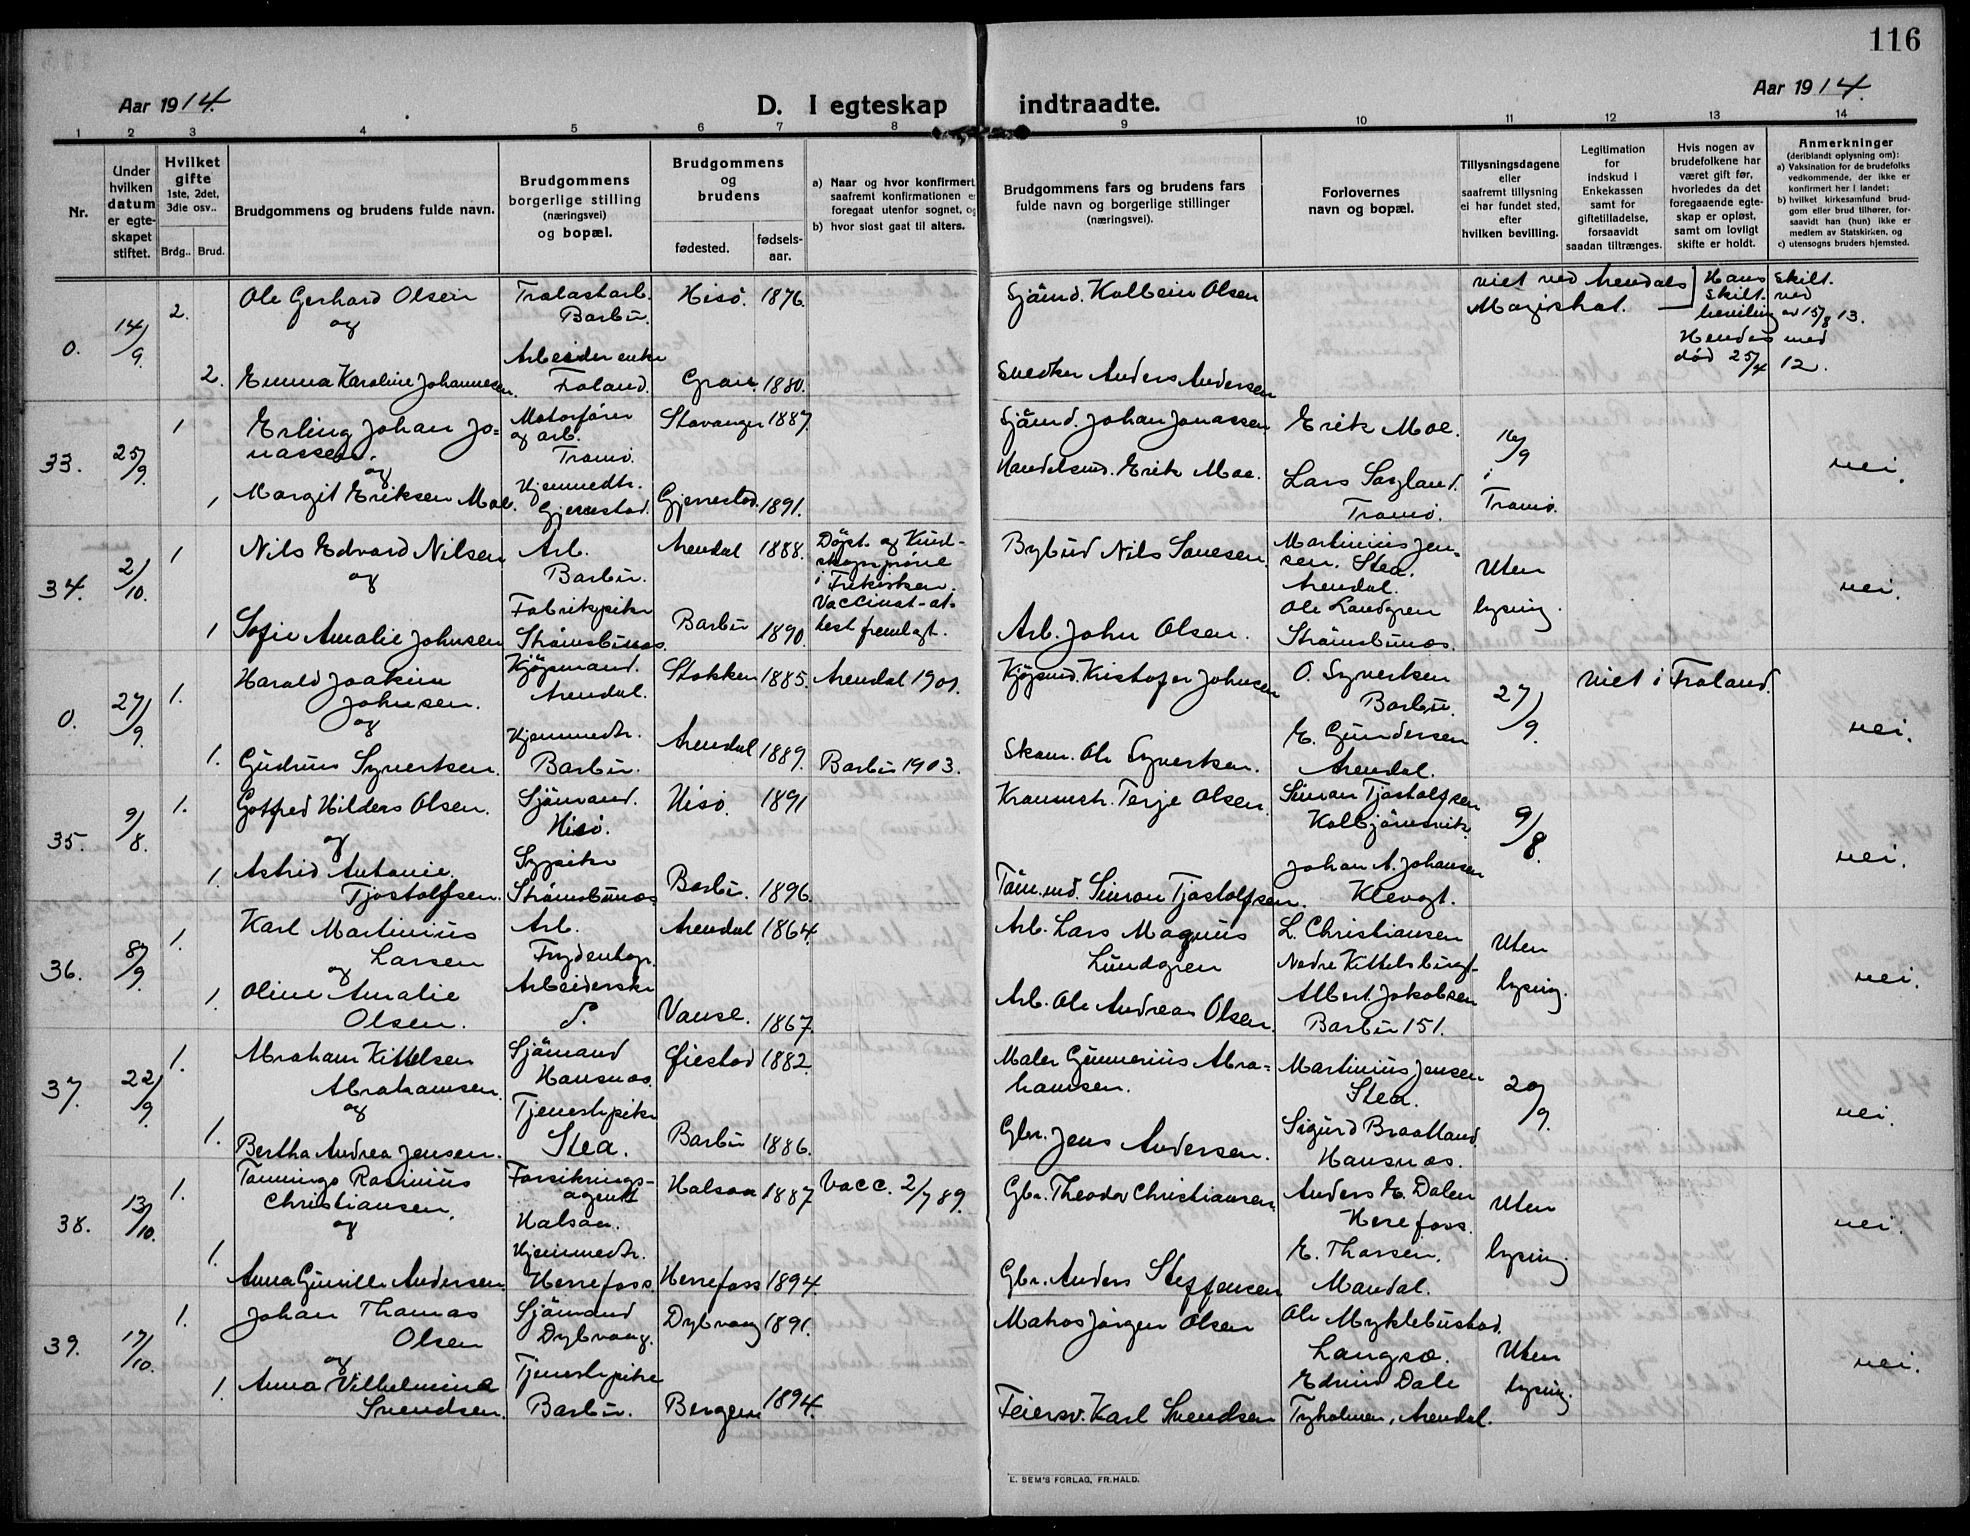 116
Aar 1914.
D. I egteskap indtraadte.
Aar 1914.
1 2 3 4 5 6 7 8 9 10 11 12 13 14
Nr.
Under
hvilken
datum
er egte-
skapet
stiftet.
Hvilket
gifte
1ste, 2det,
3die osv..
Brdg.. Brud.
Brudgommens og brudens fulde navn.
Brudgommens
borgerlige stilling
(næringsvei)
og bopæl.
Brudgommens
og
brudens
fødested.
fødsels-
aar.
a) Naar og hvor konfirmert
saafremt konfirmationen e
foregaat utenfor sognet, og
b) hvor sidst gaat til alters.
Brudgommens fars og brudens fars
fulde navn og borgerlige stillinger
(næringsvei).
Forlovernes
navn og bopæl.
Tillysningsdagene
eller
saafremt tillysning
ei har fundet sted,
efter
hvilken bevilling.
Legitimation
for
indskud i
Enkekassen
samt for
giftetilladelse,
forsaavidt
saadan tiltrænges.
Hvis nogen av
brudefolkene har
været gift før,
hvorledes da det
foregaaende egte-
skap er opløst,
samt om lovligt
skifte er holdt.
Anmerkninger
(deriblandt oplysning om):
a) Vaksination for de brudefolks
vedkommende, der ikke er
konfirmert her i landet;
b) hvilket kirkesamfund brud-
gom eller brud tilhører, for-
saavidt han (hun) ikke er
medlem av Statskirken, og
c) utensogns bruders hjemsted.
0. 14/9 2. Ole Gerhard Olsen
og
Trælastarb.
Barbu.
Hisö. 1876.
Sjömd. Kolbein Olsen
viet ved Arendals
Magistrat.
Hans skilt.
skilt. ved
bevilling av 15/8 13.
2. Emma Karoline Johannesen.
Arbeider enke
Froland. 1880.
Snedker Anders Andersen
Hendes med
död 25/4 12.
33. 25/9 1 Erling Johan Jo=
nassen.
og
Motorfører
og arb.
Tromö.
Stavanger 1887.
Sjömd. Johan Jonassen
Erik Moe.
16/9
i
Tromö.
nei.
1 Margit Eriksen Moe.
Hjemmedtr.
Gjerrestad.
Gjerrestad. 1891.
Handelsmd. Erik Moe.
Lars
Tromö.
34. 2/10. 1 Nils Edvard Nilsen
og
Arb.
Barbu.
Arendal 1888.
Döpt. og Kund-
skapspröve
i Frikirken.
Vaccinat-at-
test fremlagt.
Bybud Nils
Martinius Jen-
sen. Stea.
Arendal.
Uten
lysing.
nei.
1 Sofie Amalie Johnsen
Fabrikpike
Strömsbunes.
Barbu 1890
Arb. John Olsen.
Ole Landgren
Strömsbunes.
0. 27/9. 1. Harald Joakim
Johnsen.
og
Kjöpmand.
Arendal.
Stokken 1885.
Arendal 1901.
Kjöpmd. Kristofer Johnsen
O. Syvertsen
Barbu.
27/9.
viet i Froland.
nei.
1. Gudrun Syvertsen.
Hjemmedtr.
Barbu.
Arendal 1889.
Barbu 1903.
Skom. Ole Syvertsen.
E. Gundersen
Arendal.
35. 9/8. 1. Gotfred Hilders Olsen.
og
Sjömand.
Hisö.
Hisö. 1891
Terje Olsen
Simon Tjostolfsen
Kolbjörnsvik
9/8.
nei.
1. Astrid Antonie.
Tjostolfsen.
Sypike
Strömsbunes
Barbu. 1896.
Töm.md. Simon Tjostolfsen.
Johan A. Johansen
Klevgt.
36. 8/9. 1. Karl Martinius
Larsen
og
Arb.
Frydenhg.
Arendal 1864.
Arb. Lars Magnus
Lundgren
L. Christiansen
Nedre Kittelsbugt.
Uten
lysing.
nei.
1 Oline Amalie
Olsen.
Arbeiderske
d.
Vanse. 1867.
Arb. Ole Andreas Olsen.
Albert Jakobsen
Barbu 151.
37. 22/9. 1. Abraham Kittelsen
Abrahamsen.
og
Sjömand
Hansnæs.
Öiestad 1882.
Maler Gunnerius Abra=
hamsen.
Martinius Jensen
Stea.
20/9.
nei.
1. Bertha Andrea Jensen.
Tjenestepike
Stea.
Barbu 1886.
Gbr. Jens Andersen.
Sigurd Braatland.
Hansnæs.
38. 13/10. 1. Rasinius
Christiansen.
og
Forsiknings-
agent
Halsaa.
Halsaa 1887
Vacc. 2/7 89.
Gbr. Theodor Christiansen
Anders E. Dalen
Herefoss.
Uten
lysing.
nei.
1. Anna Gunille Andersen
Hjemmedtr.
Herrefoss.
Herrefoss 1894.
Gbr. Anders Steffensen
E. Tharsen.
Mandal.
39. 17/10. 1. Johan Thomas
Olsen
og
Sjömand
Dybvaag.
Dybvaag 1891.
Matros Jörgen Olsen
Ole Myklebustad.
Langsæ.
Uten
lysing.
nei.
1. Anna Vilhelmine
Svendsen.
Tjenestepike
Barbu.
Bergen 1894.
Feiersv. Karl Svendsen
Edvin Dale
Tyholmen, Arendal.
E. SEM'S FORLAG, FR.HALD.